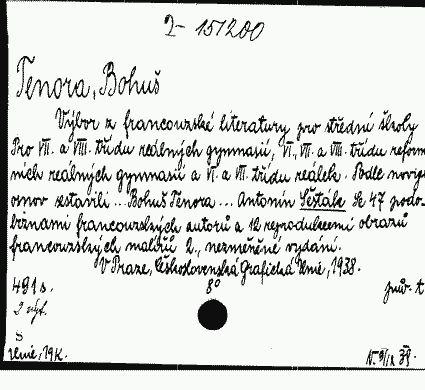 2- 151200
Tenora, Bohuš
Výbor z francouzské literatury pro střední školy
Pro VII. a VIII. třídu reálných gymnasií, VI., VII. a VIII. třídu reform-
ních reálných gymnasií a VI. a VII. třídu reálek. Podle nových
osnov sestavili ... Bohuš Tenora ... Antonín Šesták. Se 47 podo-
biznami francouzských autorů a 12 reprodukcemi obrazů
francouzských malířů 2., nezměněné vydání.
V Praze, Československá Grafická Unie, 1938.
491 s. 8°
2 výt.
S
Unie, 19K.